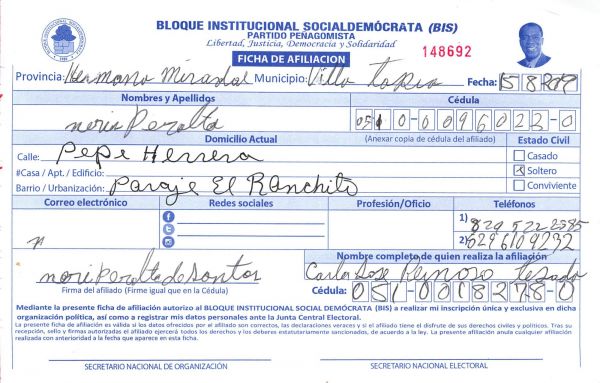 BLOQUE INSTITUCIONAL SOCIALDEMÓCRATA (BIS)
PARTIDO PEÑAGOMISTA
Libertad, Justicia, Democracia y Solidaridad
FICHA DE AFILIACION
148692
Provincia: Hermana Mirabal Municipio: Villa Tapia Fecha: 15 8
Nombres y Apellidos Cédula
Peralta 051 0-0096023-0
Domicilio Actual (Anexar copia de cédula del afiliado) Estado Civil
Calle: Pepe Herrera Casado
#Casa / Apt. / Edificio: Soltero
Barrio / Urbanización: Paraje El Ranchito Conviviente
Correo electrónico Redes sociales Profesión/Oficio Teléfonos
1) 829 522 2585
2) 8296109232
Nombre completo de quien realiza la afiliación
Peralta de santos Carlos Jose Reinoso
Firma del afiliado (Firme igual que en la Cédula) Cédula: 051-0018278-0
Mediante la presente ficha de afiliación autorizo al BLOQUE INSTITUCIONAL SOCIAL DEMÓCRATA (BIS) a realizar mi inscripción única y exclusiva en dicha
organización política, así como a registrar mis datos personales ante la Junta Central Electoral.
La presente ficha de afiliación es válida si los datos ofrecidos por el afiliado son correctos, las declaraciones veraces y si el afiliado tiene el disfrute de sus derechos civiles y políticos. Tras su
recepción, sello y firmas autorizadas el afiliado ejercerá todos los derechos y los deberes estatutariamente sancionados, de acuerdo a la ley. La presente afiliación anula cualquier afiliación
realizada con anterioridad a la fecha que aparece en esta ficha.
SECRETARIO NACIONAL DE ORGANIZACIÓN SECRETARIO NACIONAL ELECTORAL